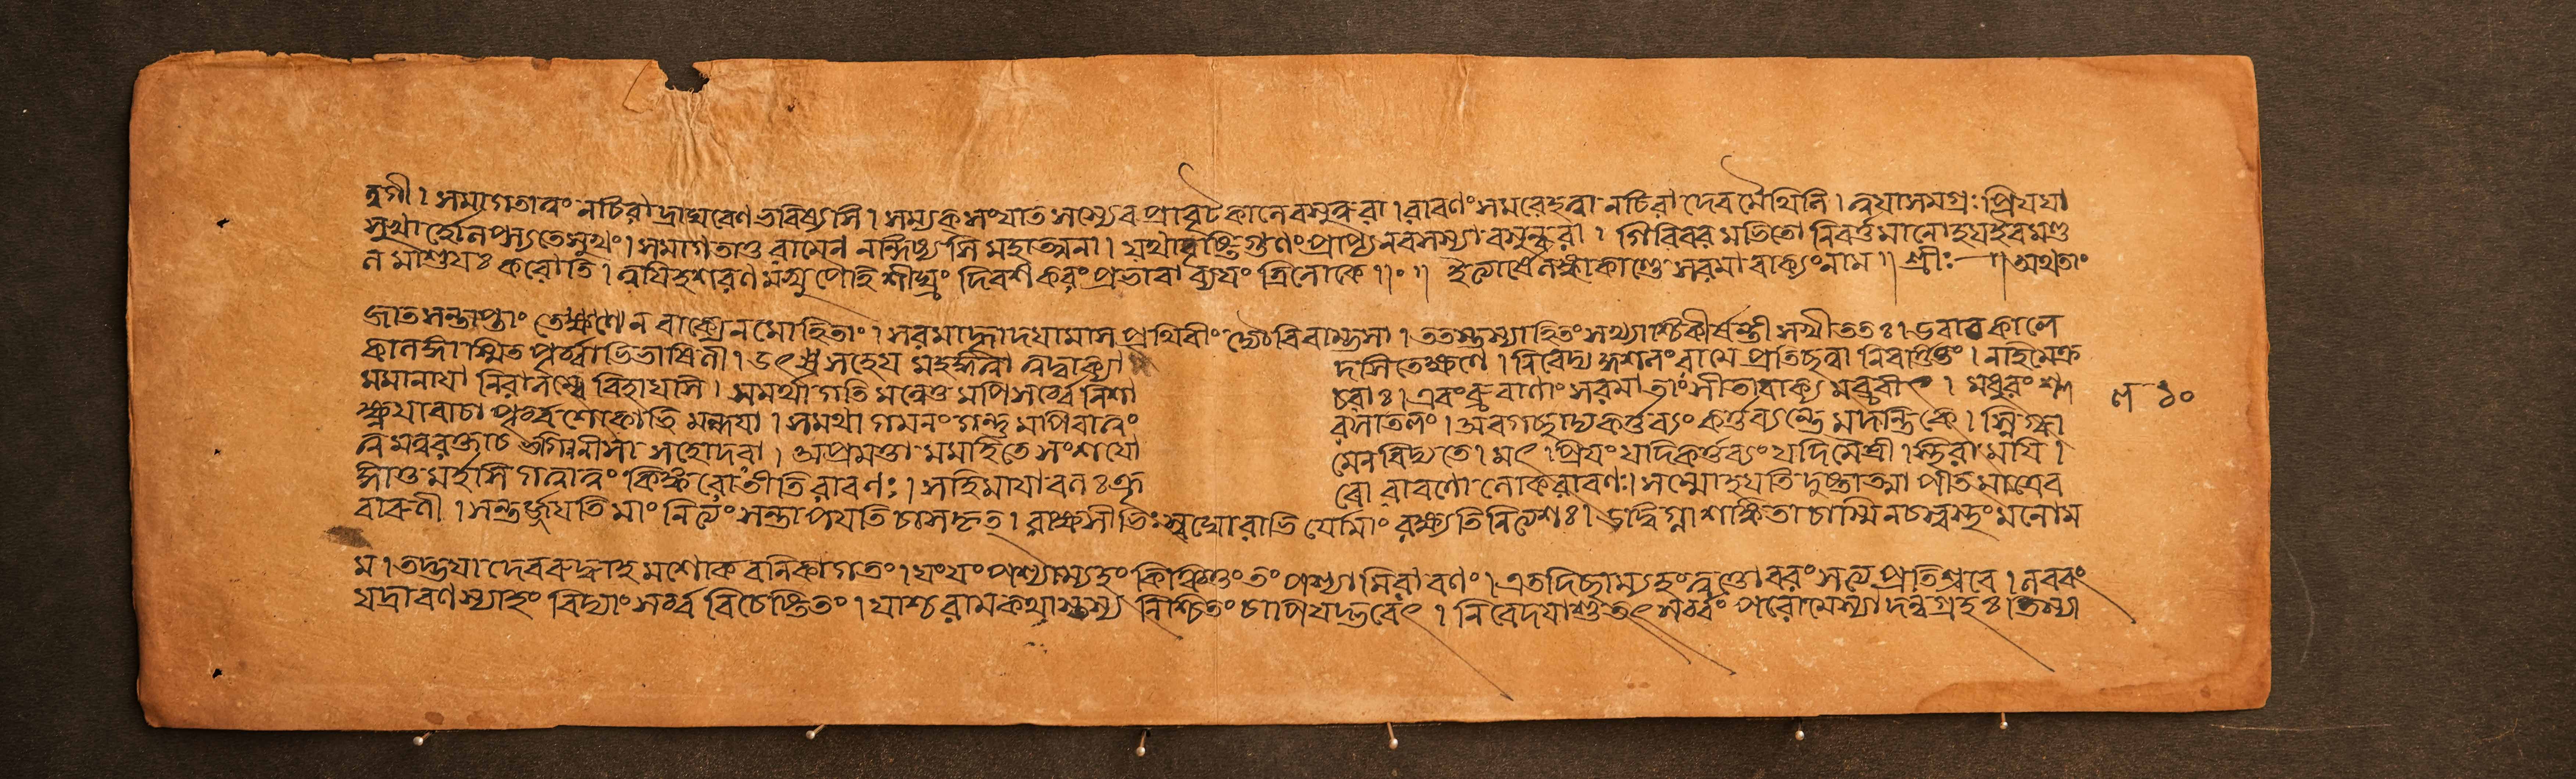 ৰগী। সমাগতাত্বং নচিৰাদ্রাঘবেণ ভবিষ্যসি। সম্যক সংযাত সস্যেব প্রাবৃট কালে বসুন্ধৰা। ৰাবণং সমৰে হত্বা নচিৰাদেব মৈথিলি। ত্বয়া সমগ্রঃ প্রিযযা
সুখার্হো লপ্স্যতে সুখং। সমাগতাণ্ড ৰামেন মহাত্মনা। যথা গুণং প্রাপ্য নবসস্যা বসুন্ধৰা। গিৰিবৰ মভিতো নিবর্ত্তমানো হয ইব মণ্ড
ল মাশুযঃ কৰোতি। ত্বমিহ শৰণ মভ্যুপেহি শীঘ্রং দিবশ কৰং প্রভাবা ব্যযং ত্রিলোকে॥০॥ ইত্যার্ষে লঙ্কাকাণ্ডে সৰমা বাক্যং নাম॥ শ্রীঃ— ॥ অথতাং
জাত সন্তাপ্তাং তেন বাক্যেন মোহিতাং। সৰমা হ্লাদযামাস পৃথিবীং দ্যৌৰিবাম্ভসা। ততস্তস্যা হিতং সখ্যাশ্চিকীর্ষন্তী সখী ততঃ। উবাচ কালে
কালজ্ঞা স্মিত পূর্ব্বাভিভাষিনী। উৎ ত্বদ্বাক্য দসিতেক্ষণে। নিবেদ্য কুশলং ৰামে প্রতিচ্ছন্না নিবর্ত্তিতুং। নহিমেক্র
মমানাযা নিৰালম্বে বিহাযসি। সমর্থা গতি মন্বেতু মপি সর্ব্বে নিশা চৰাঃ। এবং ব্রুবাণাং সৰমা তাং সীতা বাক্য মব্রবীৎ। মধুৰং শ্ল ল ১০
ক্ষ্ণযাবাচা পূর্ব্ব শোকাভি মন্নযা। সমথা গমনং গন্তু মপিবাত্বং ৰসাতলং। অবগচ্ছাদ্য কর্ত্তব্যং কর্ত্তব্যন্তে মদন্তিকে। স্নিগ্ধা
ত্ব মনুৰক্তাচ ভগিনীসা সহোদৰা। অপ্রমত্তা মমহিতে সংশযো মেন বিদ্যতে। মৎ প্রিযং যদি কর্ত্তব্যং যদি মৈত্রী স্থিৰা মযি।
জ্ঞাতু মর্হসি গত্বাত্বং কিঙ্কৰোতীতি ৰাবণঃ। সহি মাযা বলঃ ক্রূ ৰো ৰাবণো লোক ৰাবণঃ। সম্মোহযতি দুষ্টাত্মা পীত মাত্রেব
বাৰুণী। সন্তর্জ্জযতি মাং নিত্যং সন্তাপযতি চাসকৃত্। ৰাক্ষসীভিঃ সুঘোৰাভি র্যোমাং ৰক্ষ্যতি নিত্যশঃ। উদ্বিগ্না শঙ্কিতা চাস্মি নচ স্বস্থং মনোম
ম। তদ্ভযা দেবৰুদ্ধাহ মশোক বনিকাগতং। যং যং পশ্যাম্যহং কিঞ্চিত্তং তং পশ্যামি ৰাবণং। এতদিচ্ছাম্যহং ত্বত্তো বৰং সত্য প্রতিশ্রবে। নববং
যদ্রাবণস্যাহং বিদ্যাং সর্ব্ব বিচেষ্টিতং। যাশ্চ ৰাম কথাস্তস্য নিশ্চিতং চাপি যদ্ভবেৎ। নিবেদযাশুতৎ সর্ব্বং পৰোমেস্যা দনুগ্রহঃ। তস্যা